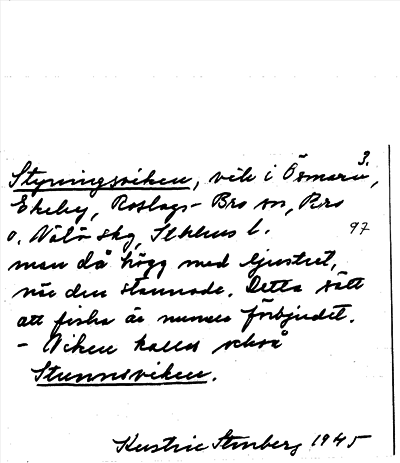 3.
Styrningsviken, vik i Ösmaren,
Ekeby, Roslags-Bro sn, Bro
o. Vätö skg, Sthlms l. 97
man då högg med ljustret,
när den stannade. Detta sätt
att fiska är numera förbjudet.
- Viken kallas också
Stunnsviken.
Kustric Stenberg 1945